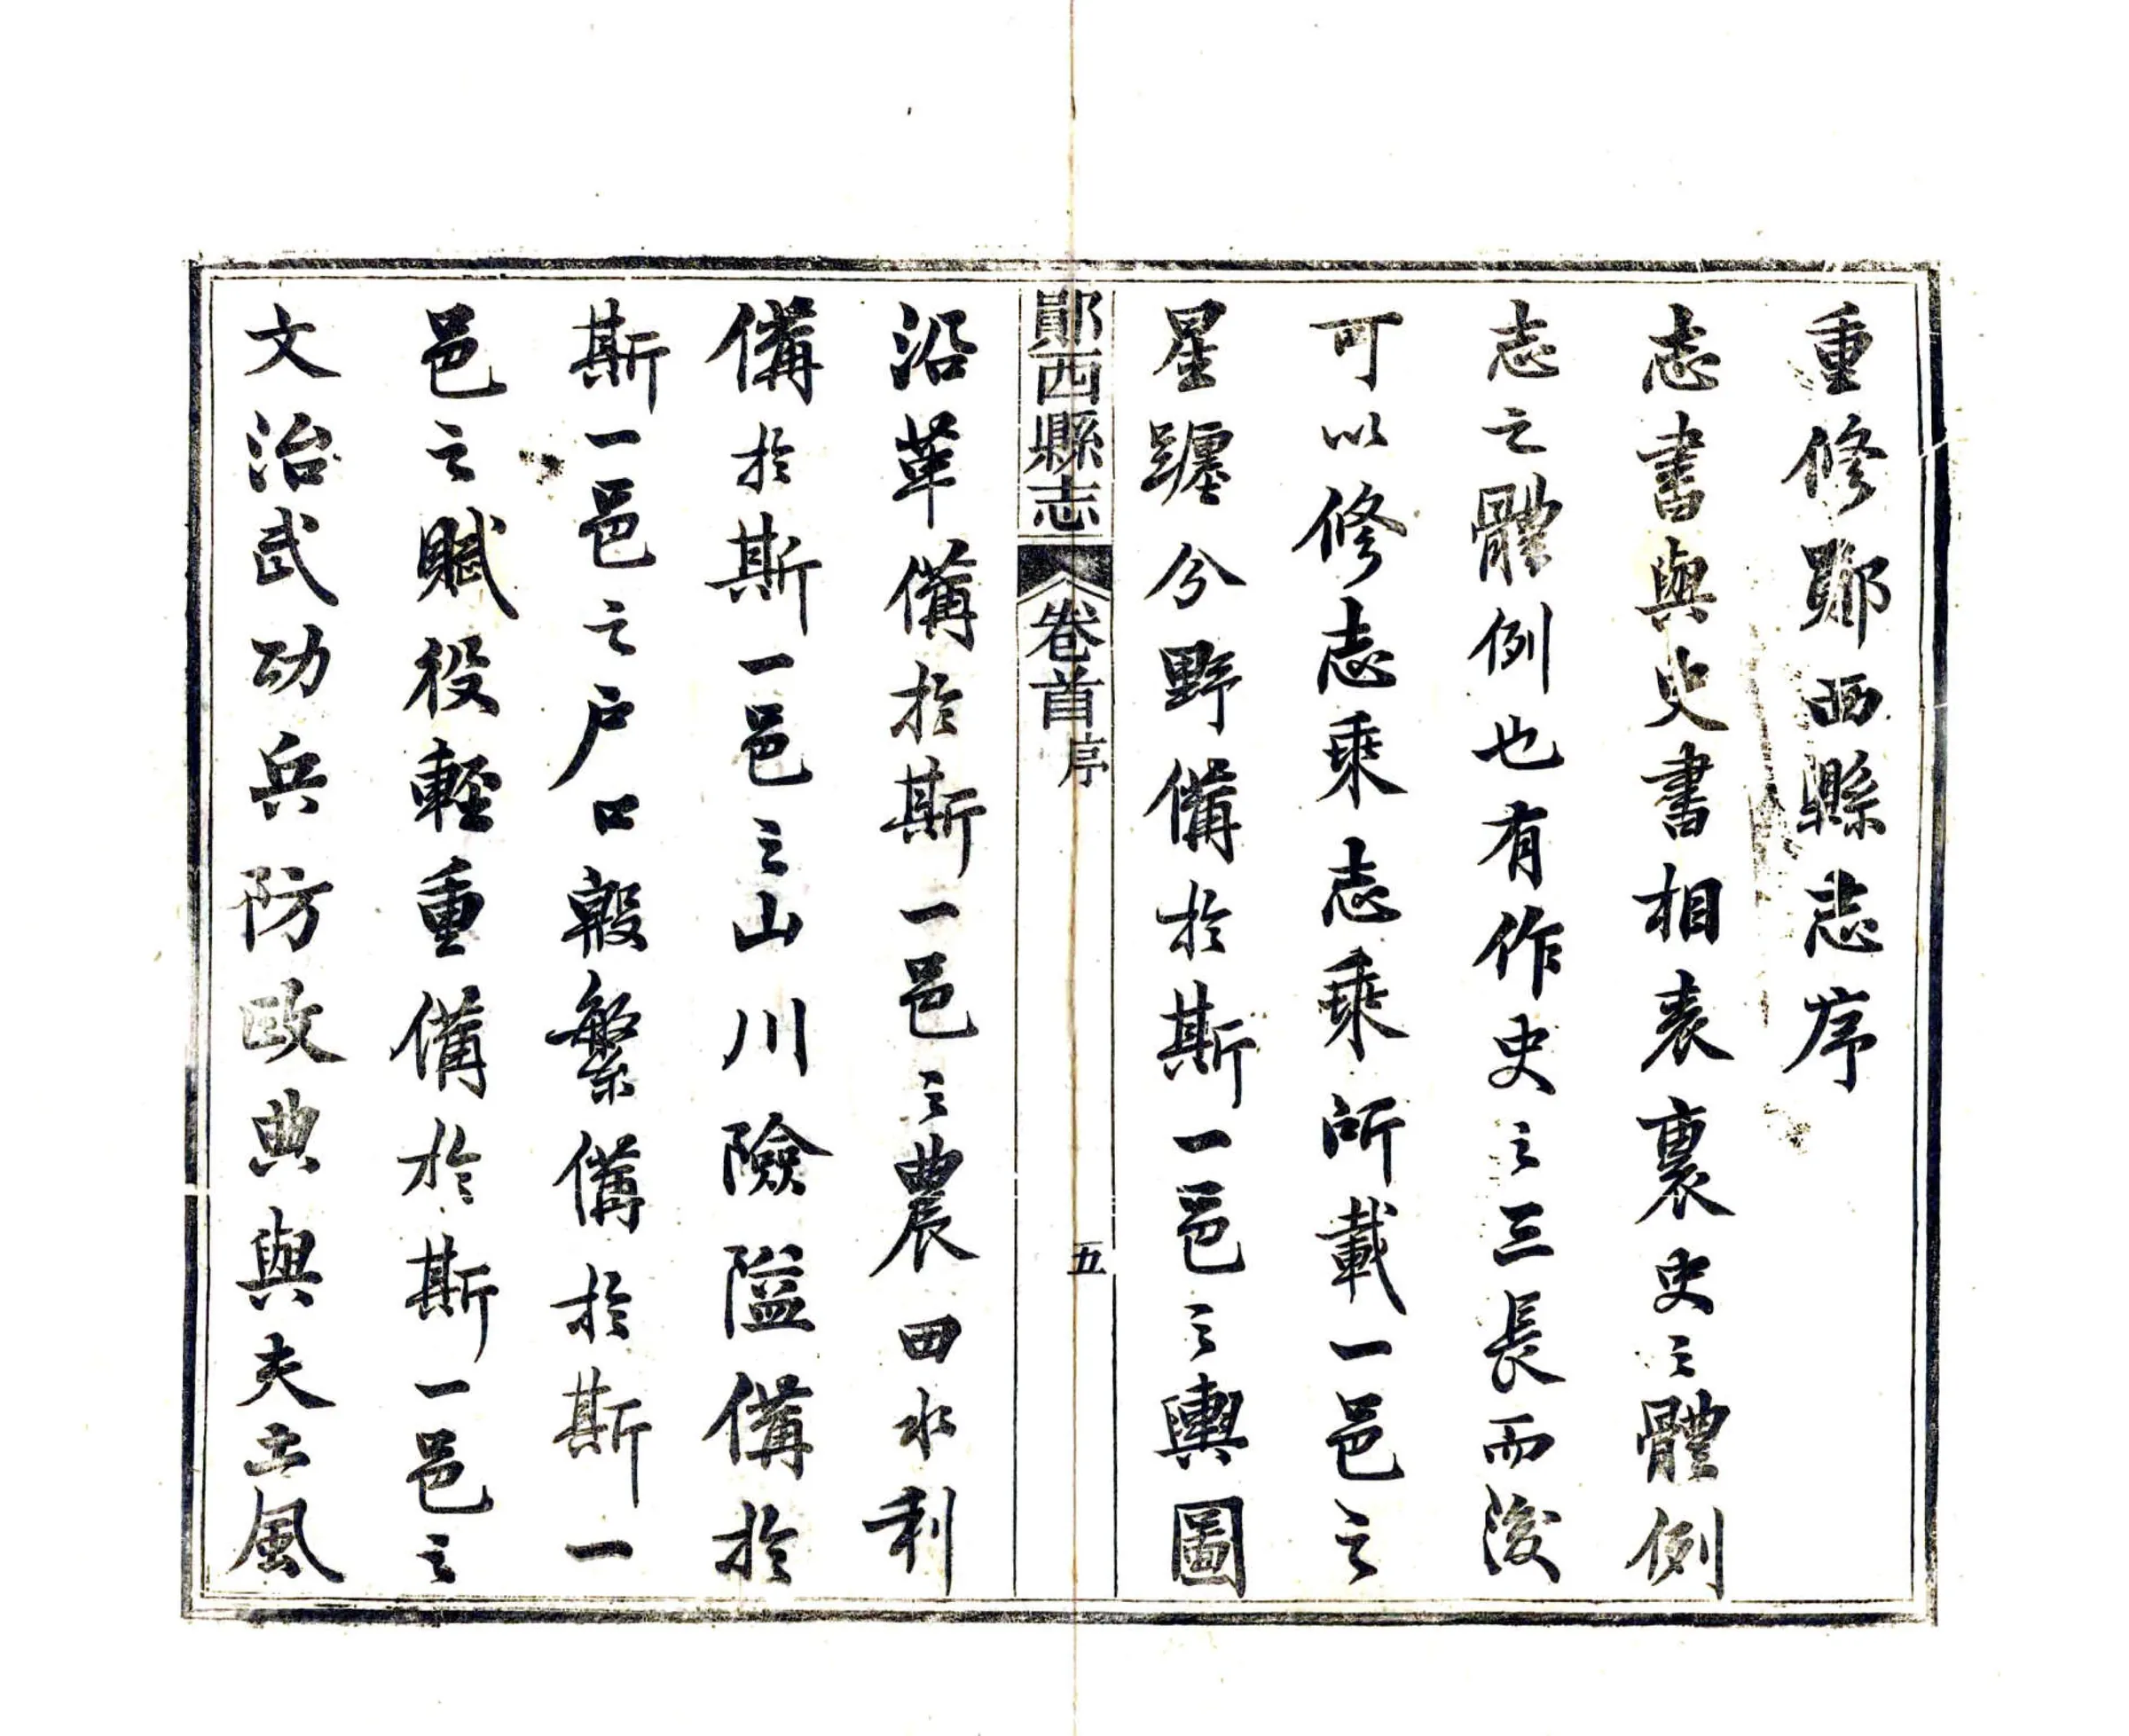 重修鄖西縣志序
志書與史書相表裏史之體例
志之體例也有作史之三長而後
可以修志乘志乘所載一邑之
星躔分野備於斯一邑之輿圖
鄖西縣志 卷首 序 五
沿革備於斯一邑之農田水利
備於斯一邑之山川險隘備於
斯一邑之戶口殷繁備於斯一
邑之賦役輕重備於斯一邑之
文治武功兵防政典與夫土風